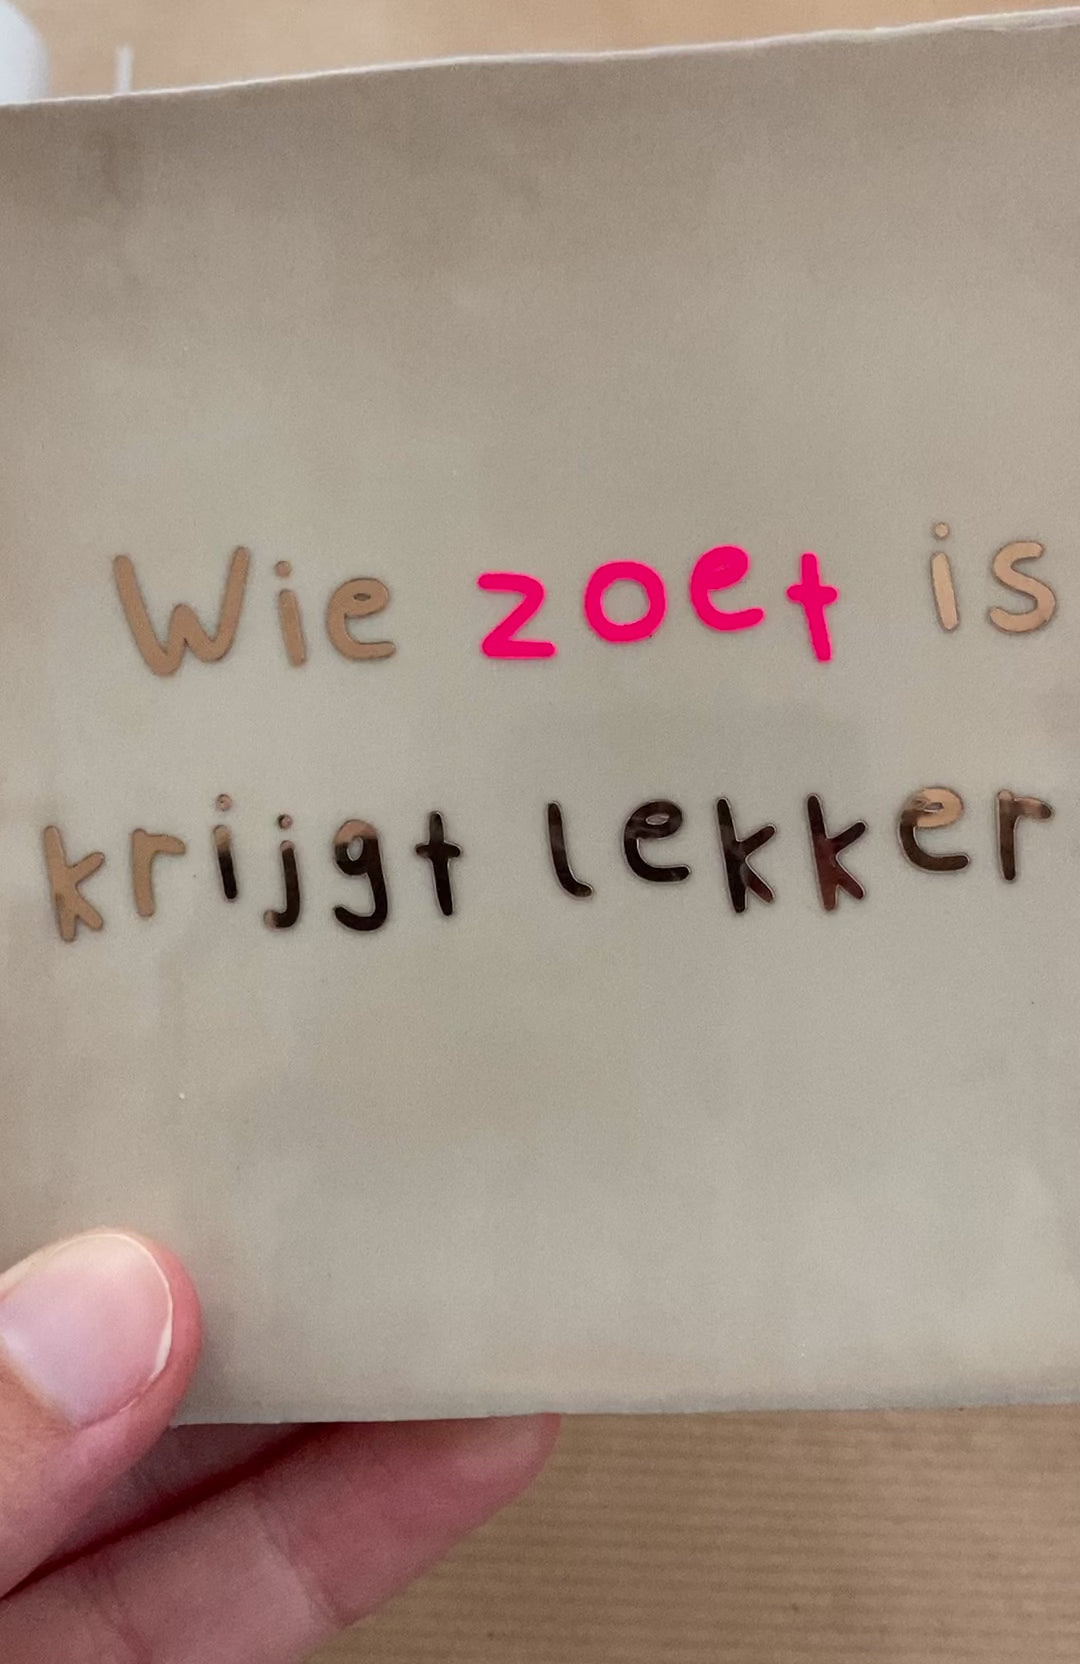 Wie zoet is
krijgt lekker